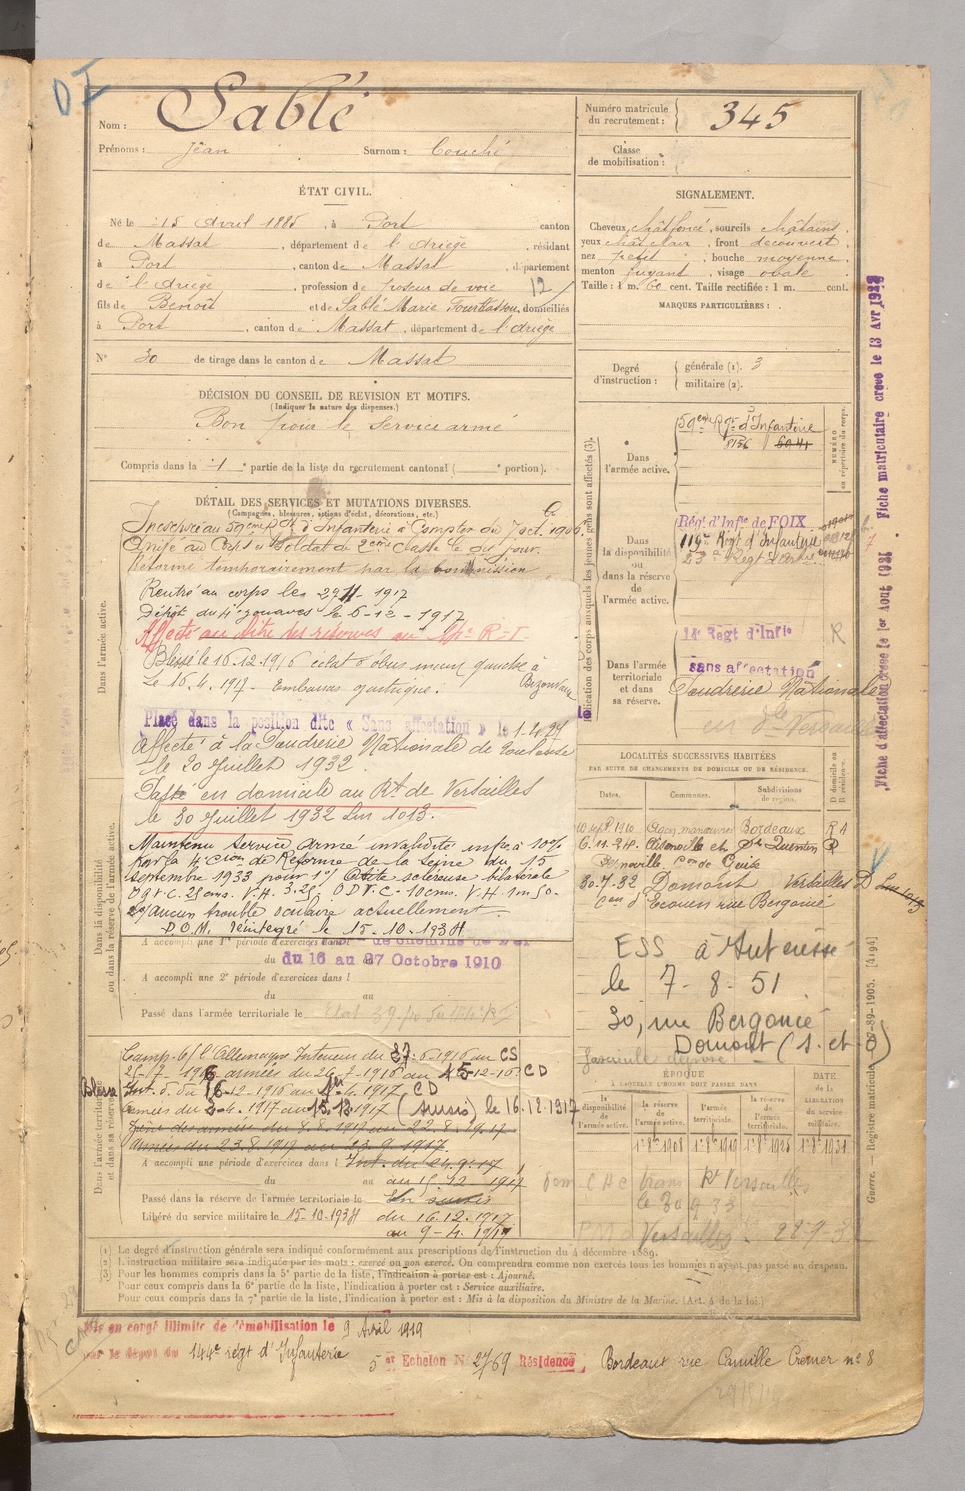 Nom : Sablé
Prénoms : Jean Surnom : Couché
ÉTAT CIVIL.
Né le 15 Avril 1885, à Port canton
de Massat, département de l'Ariège, résidant
à Port, canton de Massat, département
de l'Ariège, profession de poseur de voie 12
fils de Benoit et de Sablé Marie Fourtassou, domiciliés
à Port, canton de Massat, département de l'Ariège
N° 30 de tirage dans le canton de Massat
DÉCISION DU CONSEIL DE REVISION ET MOTIFS.
(Indiquer la nature des dispenses.)
Bon pour le service armé
Compris dans la 1e partie de la liste du recrutement cantonal ( e portion).
DÉTAIL DES SERVICES ET MUTATIONS DIVERSES.
(Campagnes, blessures, actions d'éclat, décorations, etc.)
Incorporé au 59ème Rgt d'Infanterie à Compter du 7 oct. 1906.
Arrivé au Corps et Soldat de 2ème classe le dit jour.
Réformé temporairement par la Commission
Dans l'armée active.
Rentré au corps les 29-11-1917
Dépôt du 4e zouaves le 6-12-1917
Affecté au titre des réserves au 14e R-I-
Blessé le 16.12.1916 éclat d'obus main gauche à
Le 16.4.1917 - Embarras gastrique. Bezonvaux
Placé dans la position dite « Sans affectation » le 1.4.27
Affecté à la Poudrerie Nationale de Toulouse
le 20 Juillet 1932.
Passe en domicile au Rt de Versailles
le 30 Juillet 1932 Lin 1013.
Maintenu Service armé invalidité infre à 10%
par la 4e cion de Réforme de la Seine du 15
septembre 1933 pour 1°/ Otite scléreuse bilatérale
O.D.V.C - 10 cms. V.H 1m50.
2°/ aucun trouble oculaire actuellement
D.O.M. réintégré le 15-10-1934
Dans la disponibilité ou dans la réserve de l'armée active.
A accompli une 1re période d'exercices dans
de chemins de fer
du 16 au 27 Octobre 1910
A accompli une 2e période d'exercices dans l
du au
Passé dans l'armée territoriale le
Dans l'armée territoriale et dans sa réserve.
Blessé
Camp. c/ l'Allemagne Intérieur du 27-6-1916 au CS
25-7-1916 armées du 26-7-1916 au 15-12-16. CD
Int. d. du 16-12-1916 au 1er-4-1917 CD
armées du 2-4-1917 au 15.12.1917 (Sursis) le 16.12.1917
armées du 23.8.1917 au 23.9.1917
A accompli une période d'exercices dans l Int. du 24.9.17
du au au 15-12-1917
Passé dans la réserve de l'armée territoriale le En sursis
Libéré du service militaire le 15-10-1934 du 16.12.1917
au 9-4.1919
Numéro matricule
du recrutement : 345
Classe
de mobilisation :
SIGNALEMENT.
Cheveux chât foncé, sourcils châtains.
yeux chât clair, front découvert,
nez petit, bouche moyenne,
menton fuyant, visage ovale.
Taille : 1 m. 60 cent. Taille rectifiée : 1 m. cent.
MARQUES PARTICULIÈRES :
Degré
d'instruction :
générale (1). 3
militaire (2).
Indication des corps auxquels les jeunes gens sont affectés (3).
NUMÉRO
au répertoire du corps.
Dans
l'armée active.
59eme Rgt d'Infanterie
8156
Dans
la disponibilité
ou
dans la réserve
de
l'armée active.
Régt d'Infie de FOIX
119e Régt d'Infanterie
23e Régt d'Artie
Dans l'armée
territoriale
et dans
sa réserve.
14e Regt d'Infie R
sans affectation
Poudrerie Nationale
LOCALITÉS SUCCESSIVES HABITÉES
PAR SUITE DE CHANGEMENTS DE DOMICILE OU DE RÉSIDENCE.
Dates. Communes. Subdivisions de région. D domicile ou R résidence.
10 sept. 1910 Bordeaux R A
6.11.24. St Quentin R
Con de Guise
30-7-32 Domont Versailles D
Con d'Ecouen rue Bergonié
ESS à Auterisse
le 7-8-51
30, rue Bergonié
Domont (S. et O)
ÉPOQUE
À LAQUELLE L'HOMME DOIT PASSER DANS
la disponibilité de l'armée active. la réserve de l'armée active. l'armée territoriale. la réserve de l'armée territoriale. DATE de la LIBÉRATION du service militaire.
1er 8bre 1908 1er 8bre 1919 1er 8bre 1925 1er 8bre 1931
Dom CAC trans Rt Versailles
le 30 9 33
PMd Versailles - 28-9-3
Fiche d'affectation créée le 1er Août 1921 Fiche matriculaire créée le 13 Avr 1922
Guerre. — Registre matricule. 27-89-1905. [4194]
(1) Le degré d'instruction générale sera indiqué conformément aux prescriptions de l'instruction du 4 décembre 1889.
(2) L'instruction militaire sera indiquée par les mots : exercé ou non exercé. On comprendra comme non exercés tous les hommes n'ayant pas passé au drapeau.
(3) Pour les hommes compris dans la 5e partie de la liste, l'indication à porter est : Ajourné.
Pour ceux compris dans la 6e partie de la liste, l'indication à porter est : Service auxiliaire.
Pour ceux compris dans la 7e partie de la liste, l'indication à porter est : Mis à la disposition du Ministre de la Marine. (Art. 4 de la loi.)
Mis en congé illimité de démobilisation le 9 Avril 1919
par le dépôt du 144e régt d'Infanterie
5e Echelon N° 2769 Résidence Bordeaux rue Camille Cremer n° 8